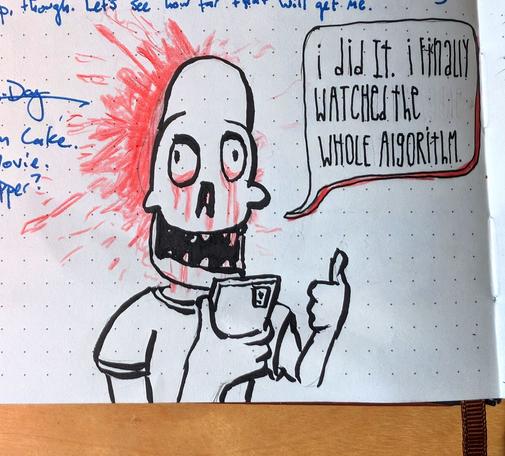 p, though. Let's see how far that will get me.
Day
Cake.
Movie.
pper?
i did It. i FiNAllY
WATCHED the
WHOLE AlgORitHM.